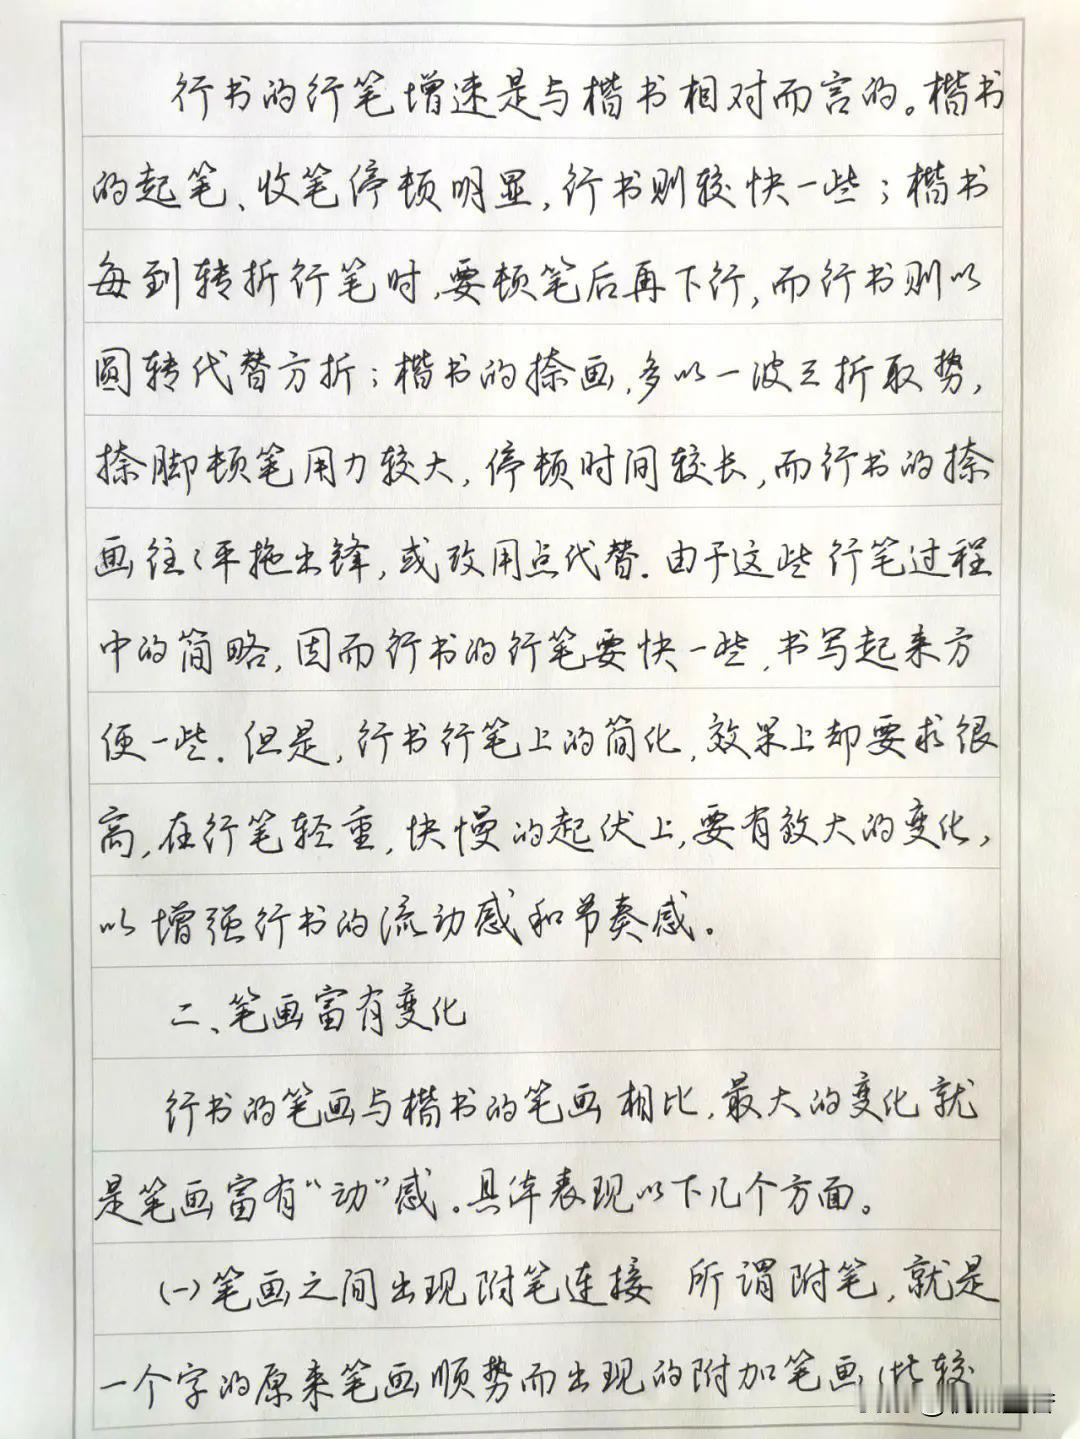 行书的行笔增速是与楷书相对而言的。楷书
的起笔、收笔停顿明显,行书则较快一些;楷书
每到转折行笔时,要顿笔后再下行,而行书则以
圆转代替方折;楷书的捺画,多以一波三折取势,
捺脚顿笔用力较大,停顿时间较长,而行书的捺
画往往平拖出锋,或改用点代替.由于这些行笔过程
中的简略,因而行书的行笔要快一些,书写起来方
便一些.但是,行书行笔上的简化,效果上却要求很
高,在行笔轻重,快慢的起伏上,要有较大的变化,
以增强行书的流动感和节奏感。
二、笔画富有变化
行书的笔画与楷书的笔画相比,最大的变化就
是笔画富有“动”感.具体表现以下几个方面。
(一)笔画之间出现附笔连接 所谓附笔,就是
一个字的原来笔画顺势而出现的附加笔画(比较